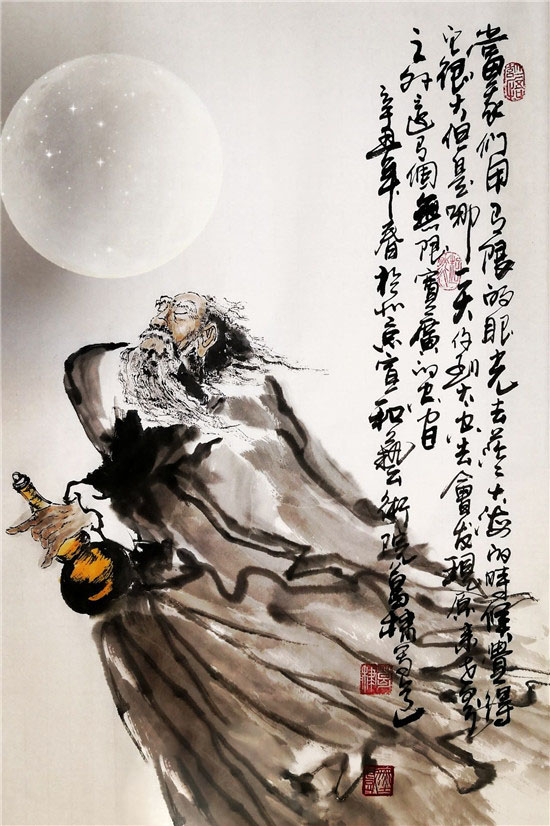 當我们用有限的眼光去大海的時候覺得
它很大但是哪一天你到太空去會发現原来世界
之外還有個無限寬廣的宇宙
辛丑年春於北京宣和藝術院寫意